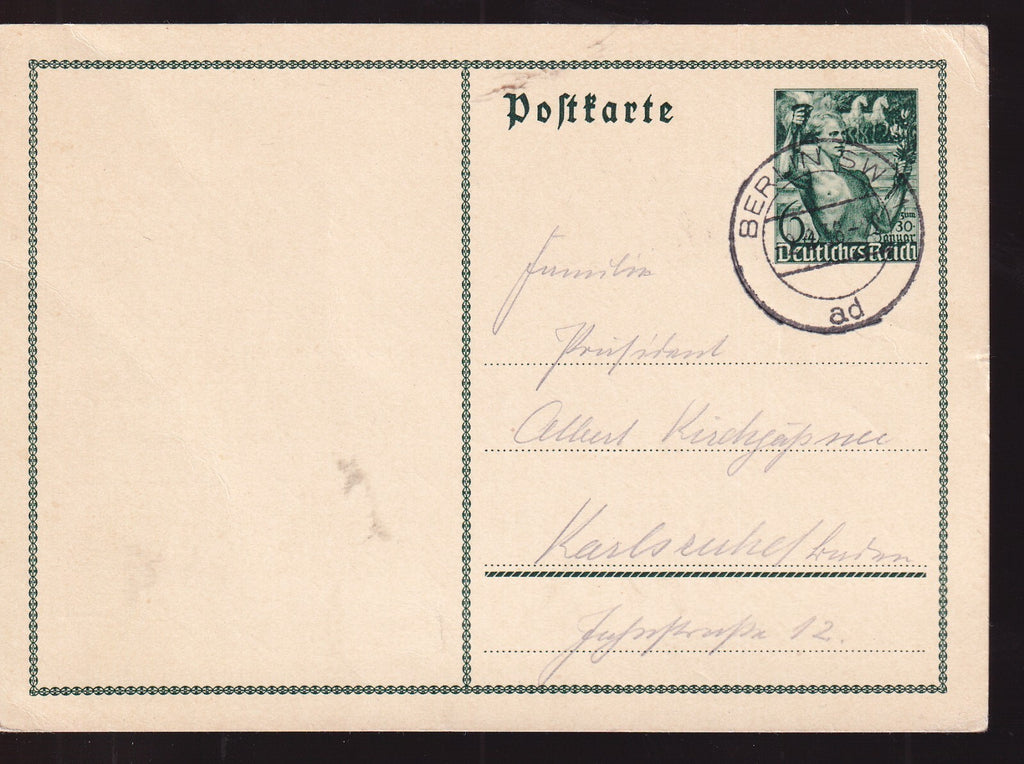 Postkarte
BERLIN SW
6
zum
30.
Januar
Deutsches Reich
ad
Familie
Präsident
Albert Kirchgäßner
Karlsruhe/Baden
12.